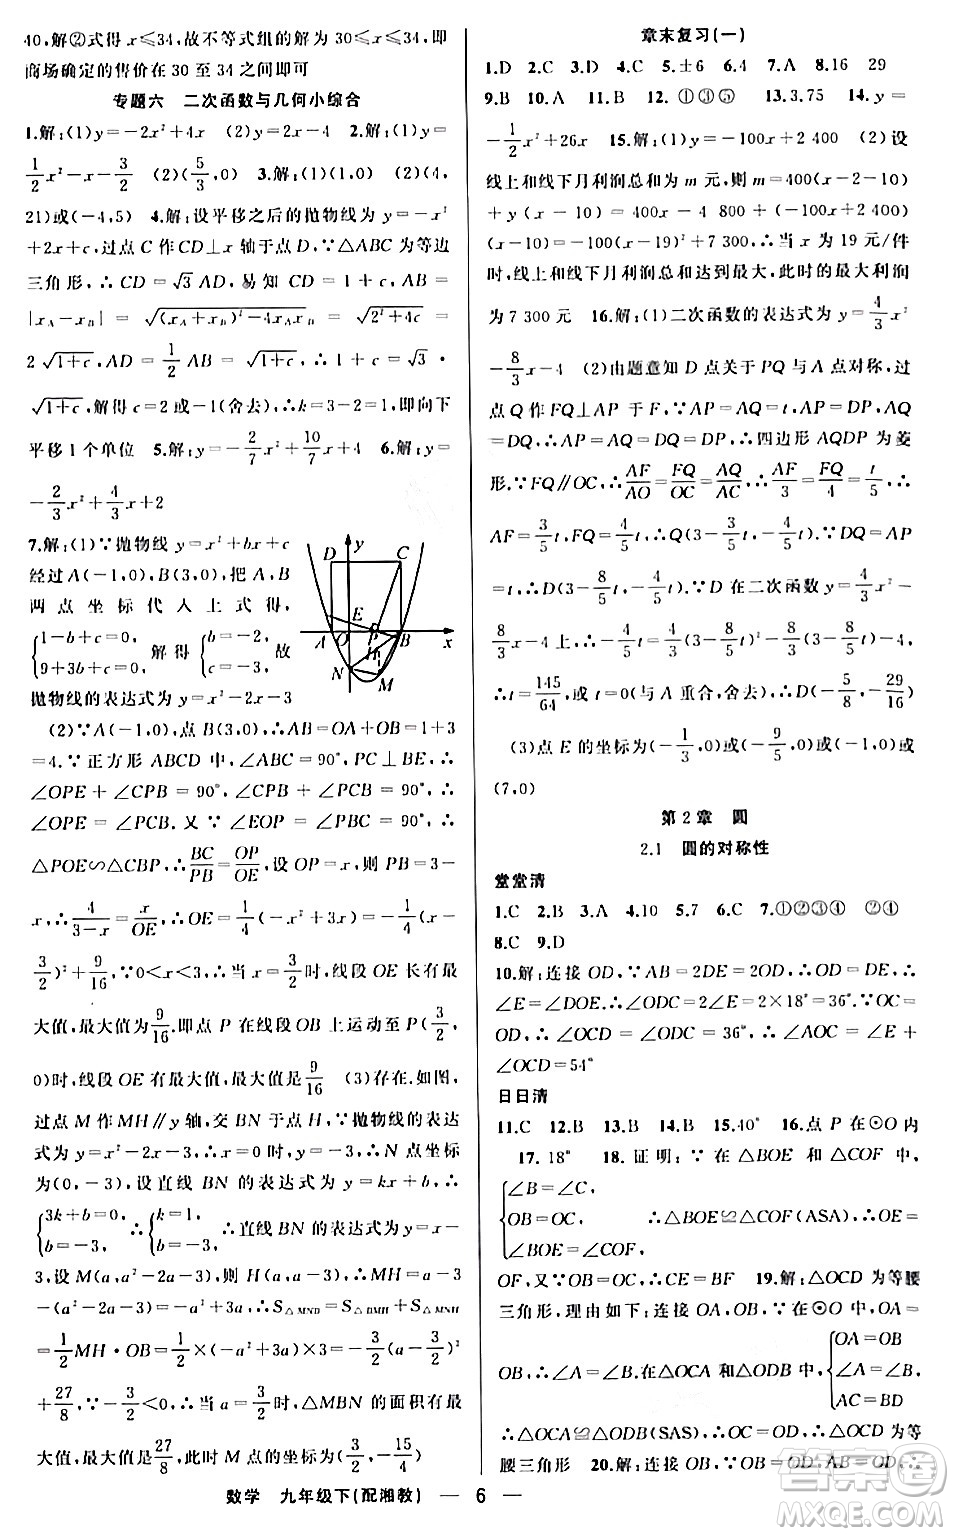 40,解②式得 x≤34,故不等式组的解为 30≤x≤34,即
商场确定的售价在 30 至 34 之间即可
专题六 二次函数与几何小综合
1.解:(1)y=-2x²+4x (2)y=2x-4 2.解:(1)y=
1/2x²-x-3/2 (2)(5/3,0) 3.解:(1)(1,0) (2)(4,
21)或(-4,5) 4.解:设平移之后的抛物线为 y=-x²
+2x+c,过点 C 作 CD⊥x 轴于点 D,∵△ABC 为等边
三角形,∴CD=√3AD,易知 CD=1+c,AB=
|x_A-x_B|=√((x_A+x_B)²-4x_Ax_B)=√(2²+4c)=
2√(1+c),AD=1/2AB=√(1+c),∴1+c=√3·
√(1+c),解得 c=2 或-1(舍去),∴k=3-2=1,即向下
平移 1 个单位 5.解:y=-2/7x²+10/7x 6.解:y=
-2/3x²+4/3x+2
7.解:(1)∵抛物线 y=x²+bx+c
经过 A(-1,0),B(3,0),把 A,B
两点坐标代入上式得,
{1-b+c=0, 9+3b+c=0, 解得 {b=-2, c=-3, 故
抛物线的表达式为 y=x²-2x-3
D y C E A O P B x H N M
(2)∵A(-1,0),点 B(3,0),∴AB=OA+OB=1+3
=4.∵正方形 ABCD 中,∠ABC=90°,PC⊥BE,∴
∠OPE+∠CPB=90°,∠CPB+∠PCB=90°,∴
∠OPE=∠PCB,又∵∠EOP=∠PBC=90°,∴
△POE∽△CBP,∴BC/PB=OP/OE,设 OP=x,则 PB=3-
x,∴4/(3-x)=x/OE,∴OE=1/4(-x²+3x)=-1/4(x-
3/2)²+9/16,∵0<x<3,∴当 x=3/2时,线段 OE 长有最
大值,最大值为9/16.即点 P 在线段 OB 上运动至 P(3/2,
0)时,线段 OE 有最大值,最大值是9/16 (3)存在.如图,
过点 M 作 MH∥y 轴,交 BN 于点 H,∵抛物线的表达
式为 y=x²-2x-3,∴当 x=0 时,y=-3,∴N 点坐标
为(0,-3),设直线 BN 的表达式为 y=kx+b,∴
{3k+b=0, b=-3, ∴{k=1, b=-3, ∴直线 BN 的表达式为 y=x-
3,设 M(a,a²-2a-3),则 H(a,a-3),∴MH=a-3
-(a²-2a-3)=-a²+3a,∴S△MNB=S△BMH+S△MNH=
1/2MH·OB=1/2×(-a²+3a)×3=-3/2(a-3/2)²
+27/8,∵-3/2<0,∴当 a=3/2时,△MBN 的面积有最
大值,最大值是27/8,此时 M 点的坐标为(3/2,-15/4)
章末复习(一)
1.D 2.C 3.C 4.C 5.±6 6.4 7.A 8.16 29
9.B 10.A 11.B 12.①③⑤ 13.3.75 14.y=
-1/2x²+26x 15.解:(1)y=-100x+2 400 (2)设
线上和线下月利润总和为 m 元,则 m=400(x-2-10)
+y(x-10)=400x-4 800+(-100x+2 400)
(x-10)=-100(x-19)²+7 300,∴当 x 为 19 元/件
时,线上和线下月利润总和达到最大,此时的最大利润
为 7 300 元 16.解:(1)二次函数的表达式为 y=4/3x²
-8/3x-4 (2)由题意知 D 点关于 PQ 与 A 点对称,过
点 Q 作 FQ⊥AP 于 F,∵AP=AQ=t,AP=DP,AQ=
DQ,∴AP=AQ=DQ=DP,∴四边形 AQDP 为菱
形.∵FQ∥OC,∴AF/AO=FQ/OC=AQ/AC,∴AF/3=FQ/4=t/5,∴
AF=3/5t,FQ=4/5t,∴Q(3-3/5t,-4/5t).∵DQ=AP
=t,∴D(3-8/5t,-4/5t),∵D 在二次函数 y=4/3x²-
8/3x-4 上,∴-4/5t=4/3(3-8/5t)²-8/3(3-8/5t)-4,
∴t=145/64,或 t=0(与 A 重合,舍去),∴D(-5/8,-29/16)
(3)点 E 的坐标为(-1/3,0)或(-9/5,0)或(-1,0)或
(7,0)
第 2 章 圆
2.1 圆的对称性
堂堂清
1.C 2.B 3.A 4.10 5.7 6.C 7.①②③④ ②④
8.C 9.D
10.解:连接 OD,∵AB=2DE=2OD,∴OD=DE,∴
∠E=∠EOD,∴∠ODC=2∠E=2×18°=36°.∵OC=
OD,∴∠OCD=∠ODC=36°,∴∠AOC=∠E+
∠OCD=54°
日日清
11.C 12.B 13.B 14.B 15.40° 16.点 P 在⊙O 内
17.18° 18.证明:∵在△BOE 和△COF 中,
{∠B=∠C, OB=OC, ∠BOE=∠COF, ∴△BOE≌△COF(ASA),∴OE=
OF,又∵OB=OC,∴CE=BF 19.解:△OCD 为等腰
三角形,理由如下:连接 OA,OB,∵在⊙O 中,OA=
OB,∴∠A=∠B.在△OCA 和△ODB 中,{OA=OB ∠A=∠B, AC=BD
∴△OCA≌△ODB(SAS),∴OC=OD,∴△OCD 为等
腰三角形 20.解:连接 OD.∵AB=OC,∴AB=OB,∴
数学 九年级下(配湘教) — 6 —